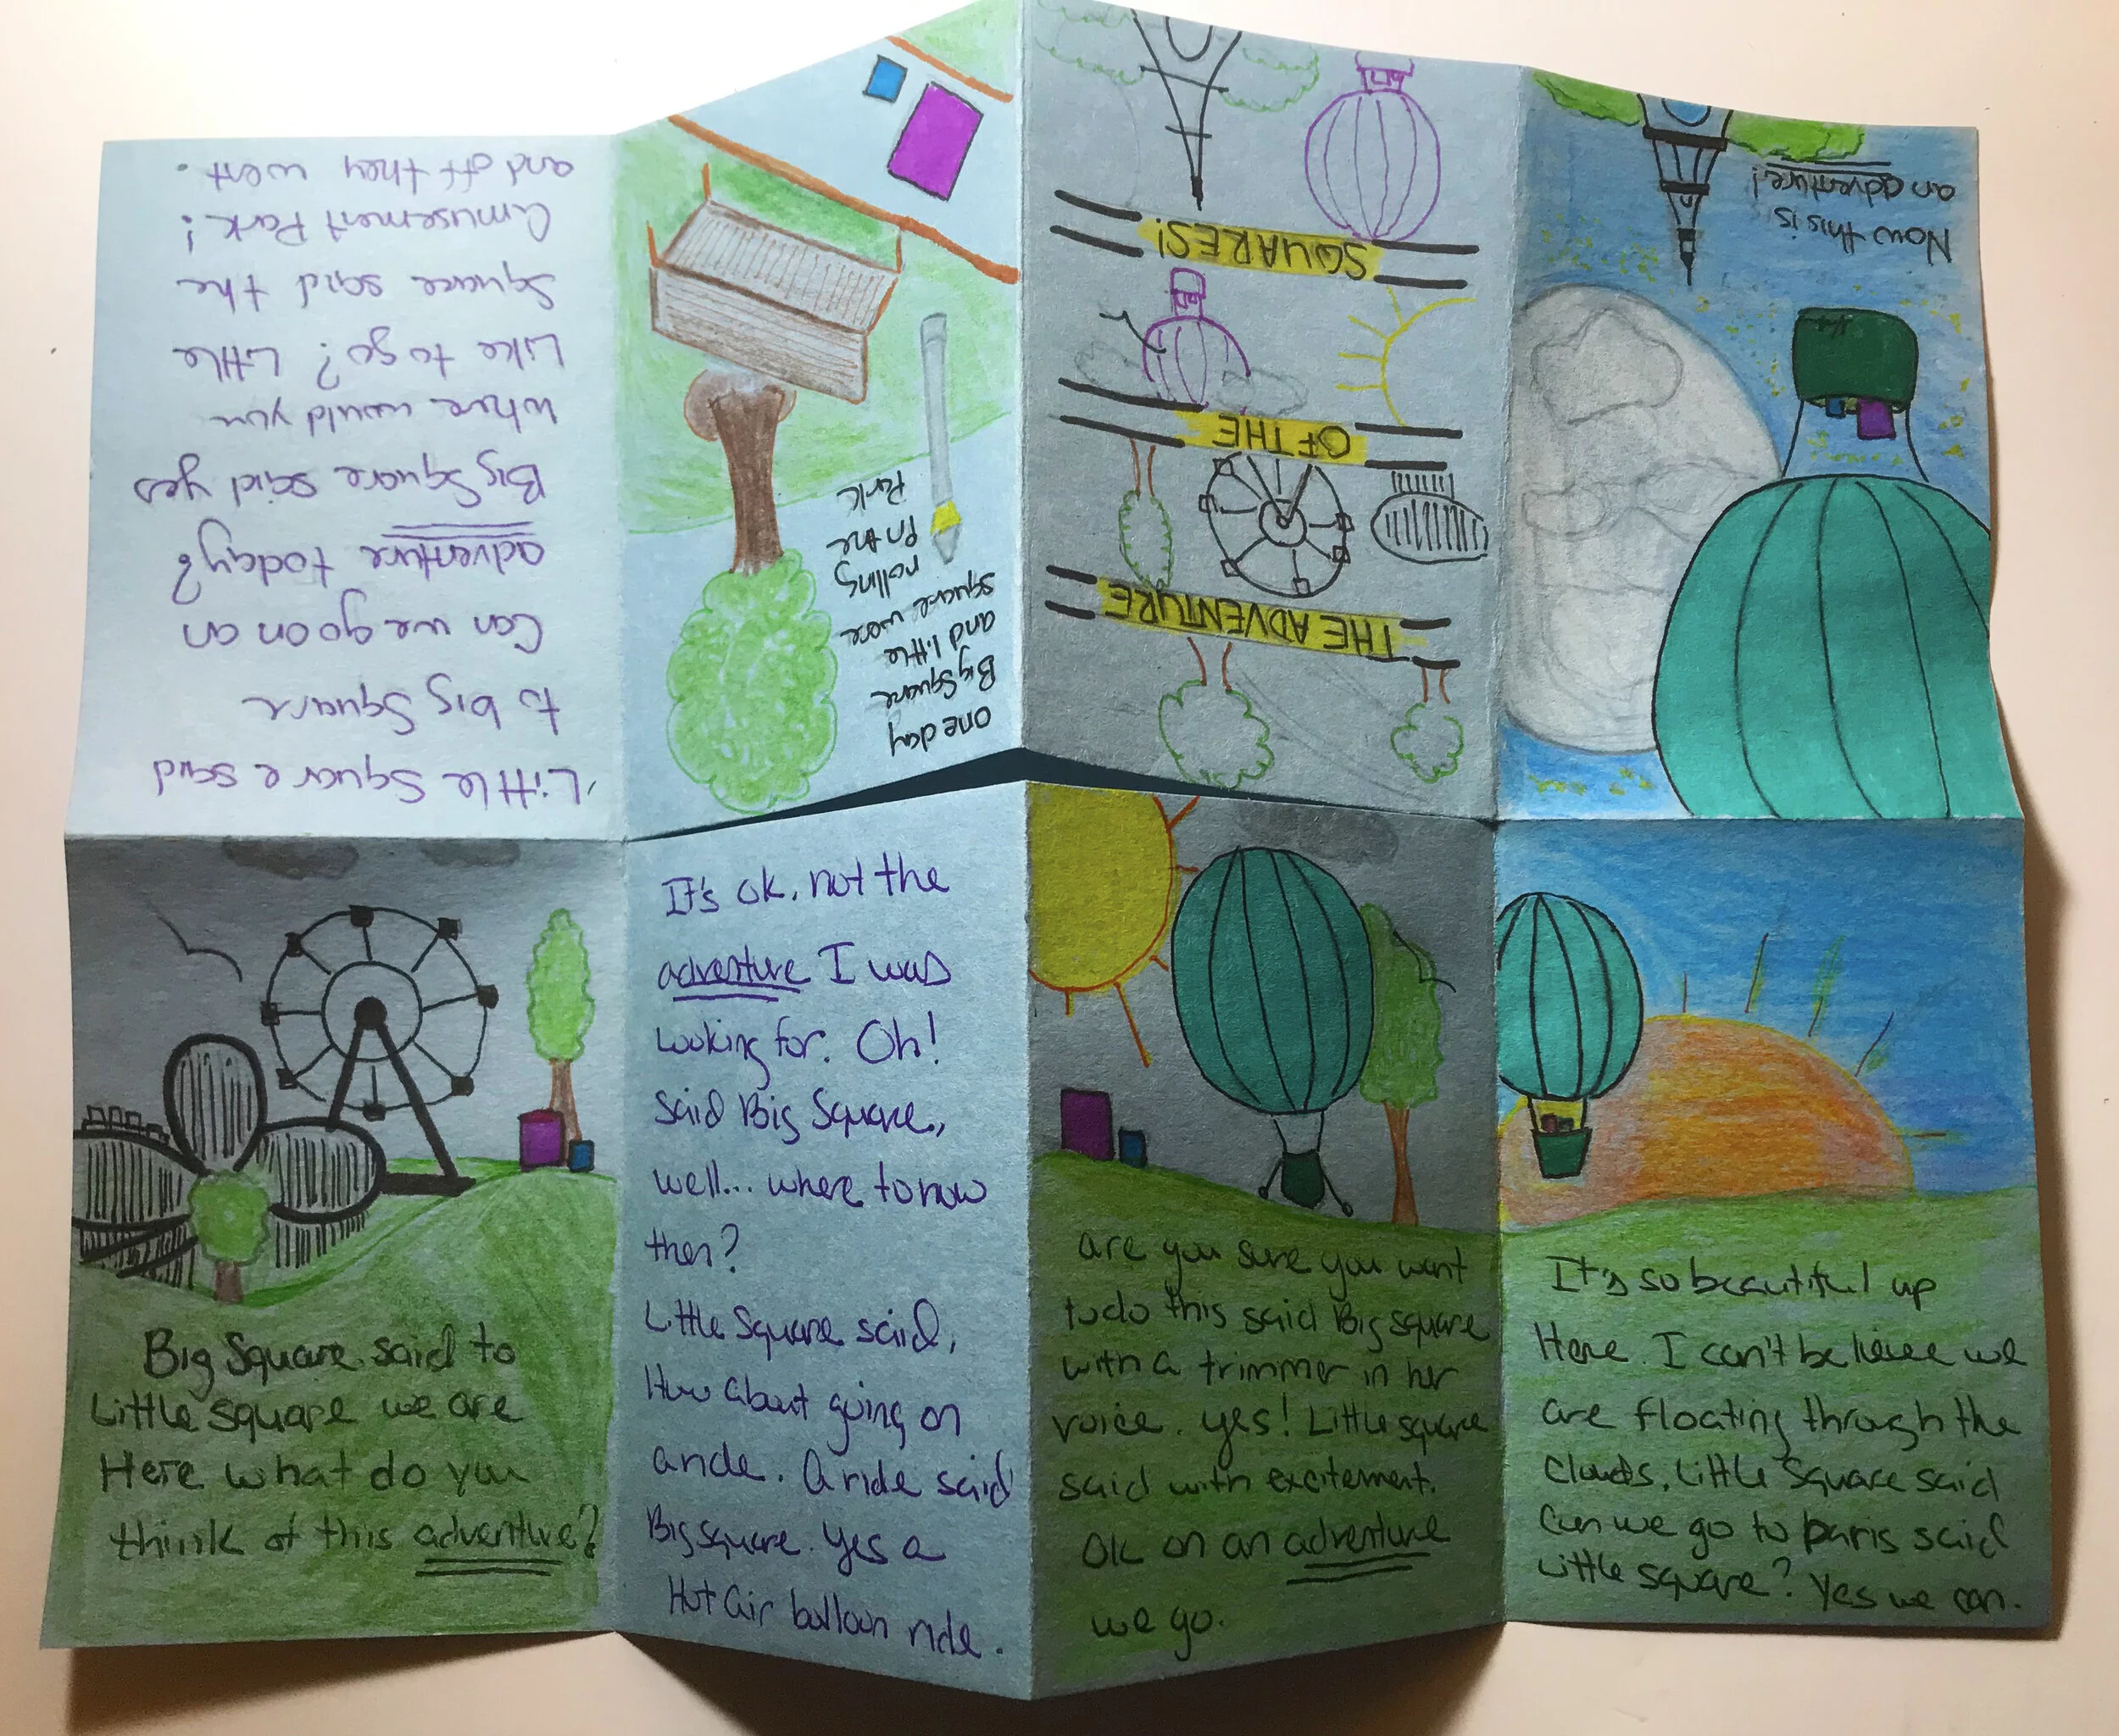 THE ADVENTURE
OF THE
SQUARES!
One day
Big Square
and little
square were
rolling
in the
Park
Little Square said
to big Square
Can we go on an
adventure today?
Big Square said yes
where would you
Like to go? Little
Square said the
Amusement Park!
and off they went.
Big Square said to
Little square we are
Here what do you
think of this adventure?
It's ok, not the
adventure I was
Looking for. Oh!
said Big Square,
well... where to now
then?
Little Square said,
How about going on
a ride. A ride said
Big square. Yes a
Hot air balloon ride.
are you sure you want
to do this said Big square
with a trimmer in her
voice. yes! Little square
said with excitement.
Ok on an adventure
we go.
It's so beautiful up
Here. I can't believe we
are floating through the
clouds, Little Square said
Can we go to paris said
Little square? Yes we can.
Now this is
an adventure!